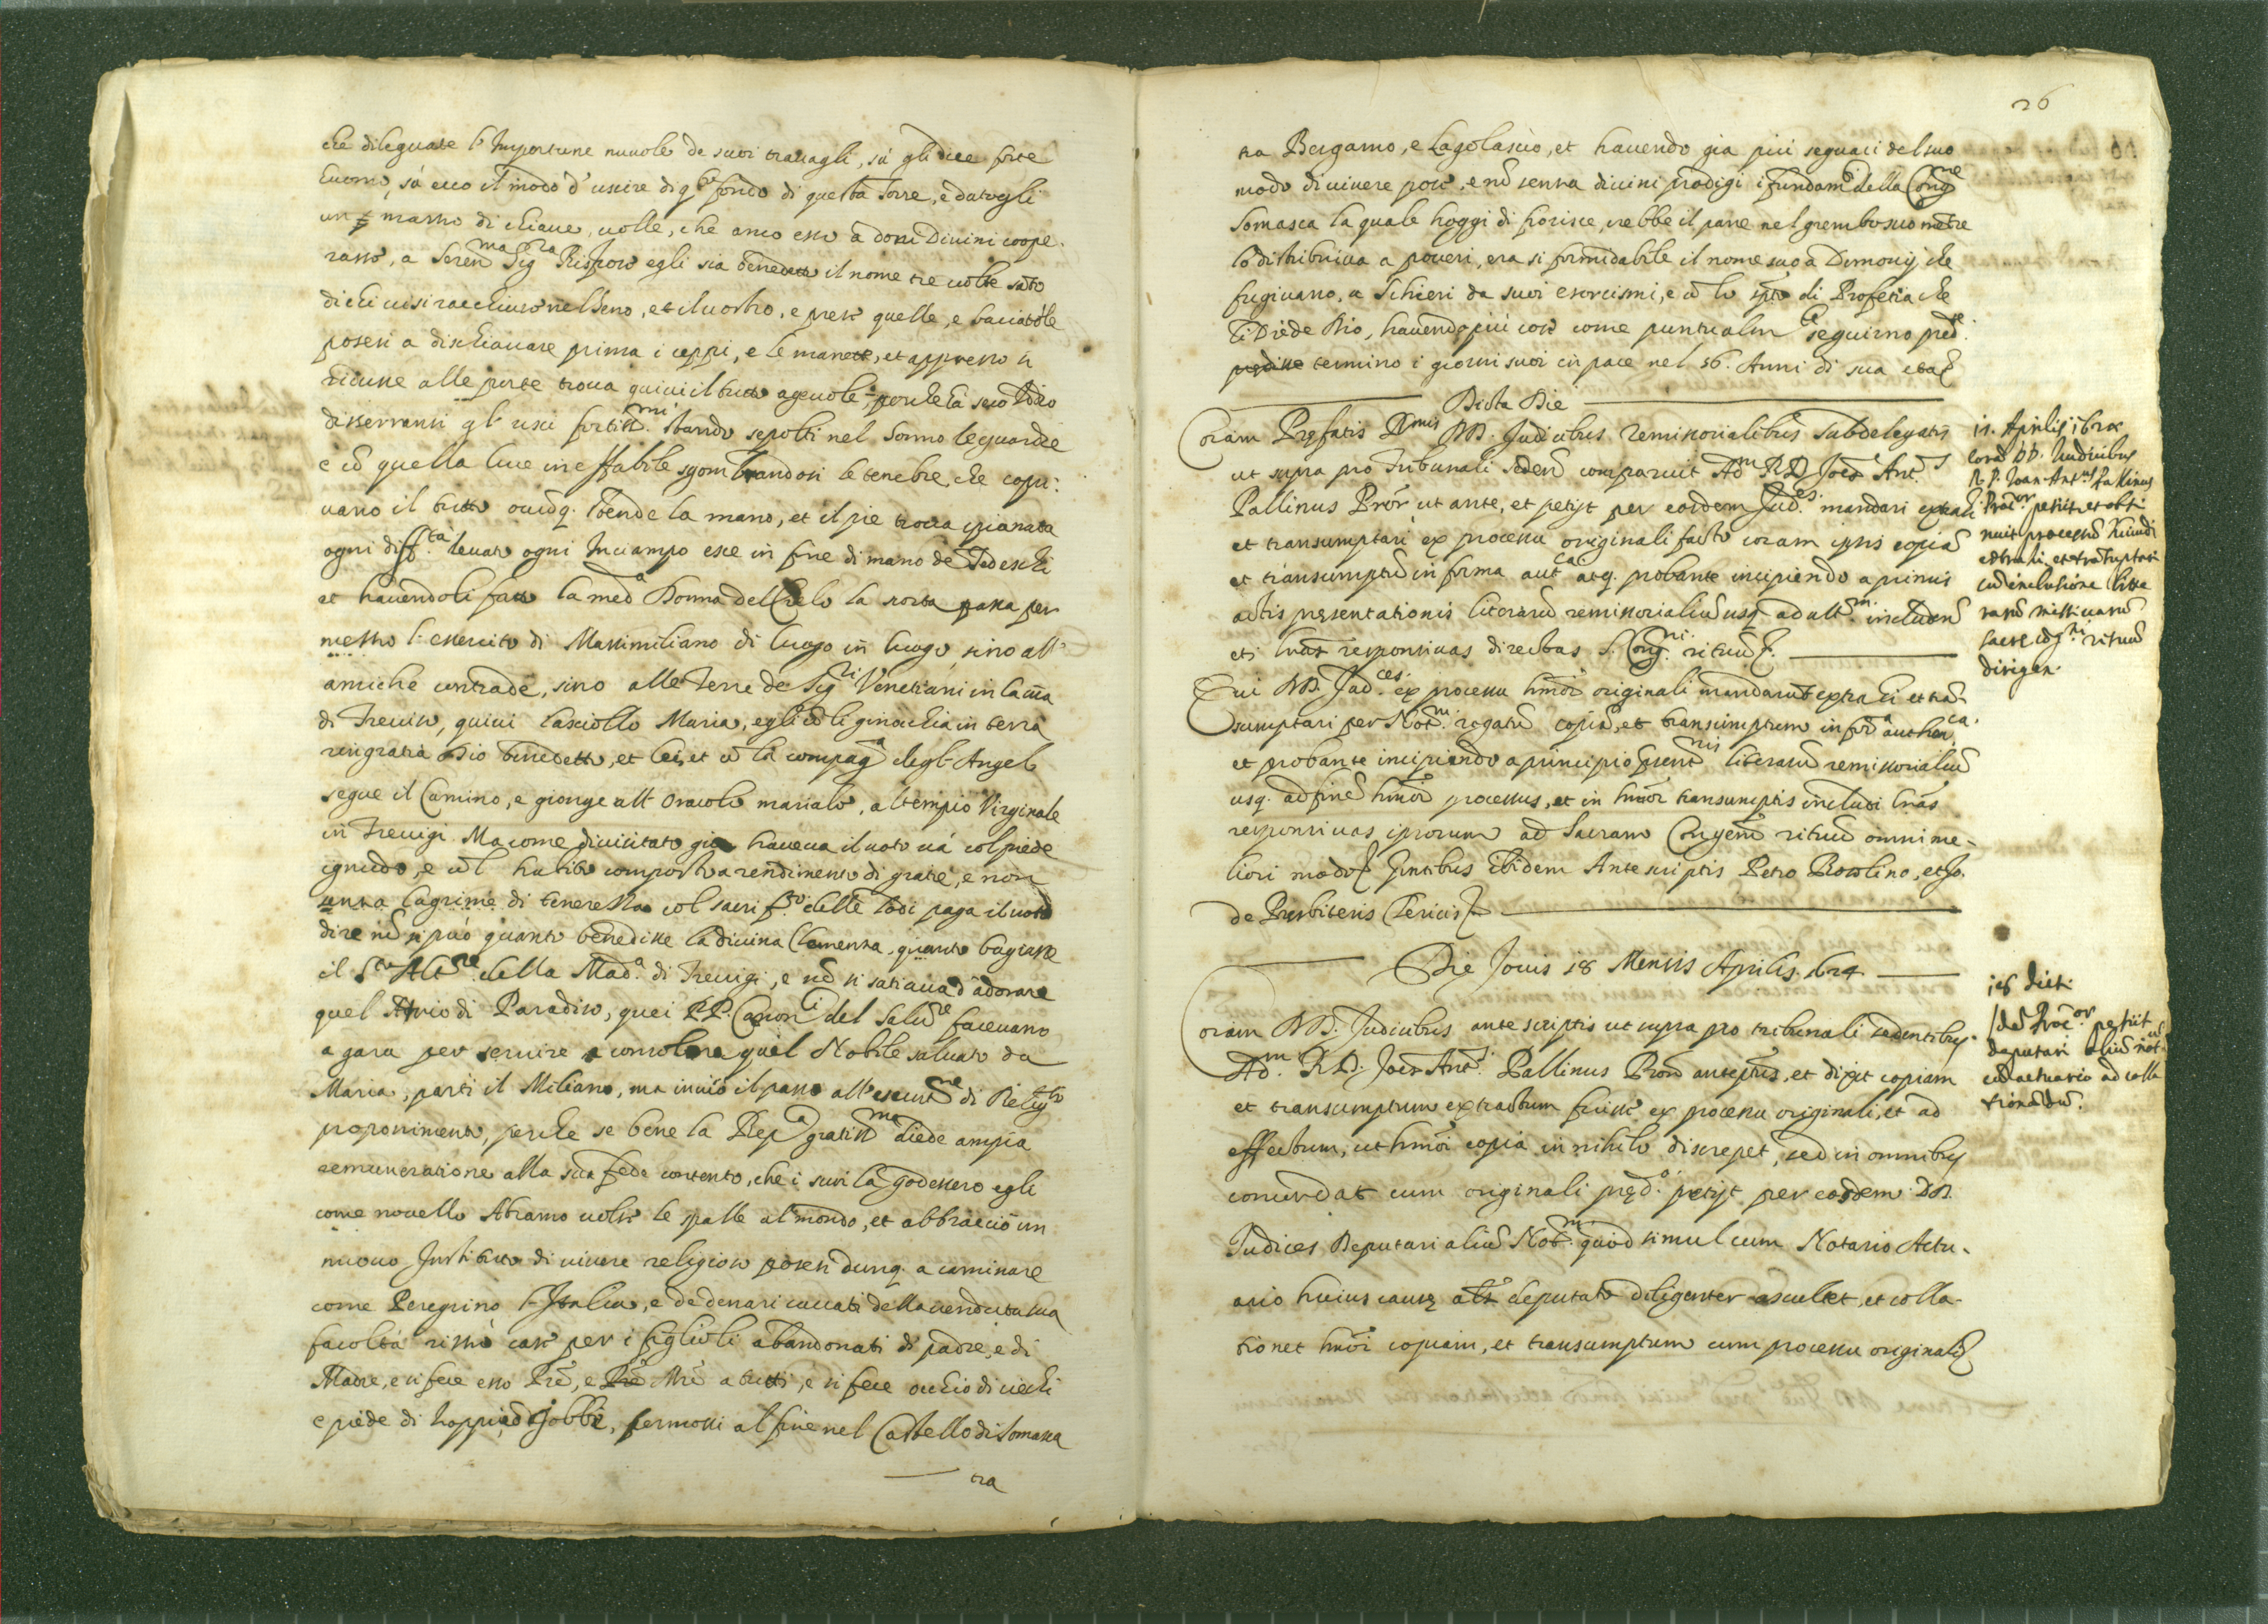 che dileguate l'Importune nuvole de suoi travagli, sù gli dice forte
huomo, sù ecco il modo d'uscire di q.sto fondo di questa Torre, e datogli
un mazzo di chiave, volle, che anco esso à doni Divini coope-
rasse, a Seren.ma Sig.ra Rispose egli sia benedetto il nome tre volte sãto
di chi vi si racchiuse nel seno, et il vostro, e prese quelle, e baciatole
posesi a dischiavare prima i ceppi, e le manette, et appresso si
ridusse alle porte trova quivi il tutto agevole, perche hà seco Iddio
disserransi gl' usci fortiss.mi stando sepolti nel sonno le guardie
e cõ quella luce ineffabile sgombrandosi le tenebre, che copri-
vano il tutto ovũq. stende la mano, et il pie trova spianata
ogni diff.tà levato ogni Inciampo esce in fine di mano de Tedeschi
et havendoli fatto la med.a Donna del Cielo la scorta passa per
mezzo l'essercito di Massimiliano di luogo in luogo sino all'
amiche contrade, sino alle Terre de Sig.ri Venetiani in la
di Treviso, quivi lasciollo Maria, egli cõ li ginocchia in terra
ringratia Dio benedetto, et lei, et cõ la compag.a degl' Angeli
segue il Camino, e gionge all' Oracolo mariale, al tempio Virginale
in Trevigi. Ma come di vicitato gia haveva il voto và col piede
ignudo, e cõ l' habito composto a rendimento di gratie, e non
senza lagrime di tenerezza col sacrif.o delle lodi paga il voto
dire nõ si può quanto benedisse la divina Clemenza, quanto bagiasse
il S.to Alt.re della Mad.a di Trevigi, e nõ si satiava d'adorare
quel Atrio di Paradiso, quei RR. Canon.i del Salũ.re facevano
a gara per servire e consolare quel Nobile salvato da
Maria, parti il Miliano, ma inviò il passo all' esecut.ne di Relig.so
proponimento, perche se bene la Rep.a gratiss.ma diede ampia
remuneratione alla sua fede contento, che i suoi la godessero egli
come novello Abramo volse le spalle al mondo, et abbracciò un
nuovo Instituto di vivere religioso posesi dunq. a caminare
come Peregrino l'Italia, e de denari cavati della venduta sua
facoltà rizzò case per i figlioli abandonati di padre, e di
Madre, e si fece esso Prẽ, e Mrẽ a tutti, e si fece occhio di ciechi
e piede di zoppi, ed gobbi, fermossi al fine nel Castello di Somasca
tra
26
tra Bergamo, e Lagolascio, et havendo gia più seguaci del suo
modo di vivere pose, e nõ senza divini prodigi i fundam.i della Cong.ne
Somasca la quale hoggi di fiorisce, crebbe il pane nel grembo suo mẽtre
lo distribuiva a poveri, era si formidabile il nome suo a Demonij che
fugivano, a Schieri da suoi esorcismi, e cõ lo spĩto di Profetia che
li Diede Dio, havendo più cose come puntualm.te seguirno pred.te
termino i giorni suoi in pace nel 56. Anni di sua etaẽ
Dicta Die
Coram Prefatis D.mis DD. Judicibus remissorialibus subdelegatis
ut supra pro Tribunali sedẽn comparuit Ad.m R.D. Joẽs Ant.s
Pallinus Prõr ut ante, et petijt per eosdem Jud.es mandari extrahi
et transumptari ex processu originali facto coram ipsis copiã
et transumptũ in forma aut.ca atq. probante incipiendo a primis
actis presentationis literarũ remissorialiũ usq. ad ult.m includen
etj lrãs responsivas directas S. Cong.ni rituũ.
Qui DD. Jud.ces ex processu hm̃oi originali mandarunt extrahi et trã
sumptari per Not.m rogatũ copiã, et transumptum in for.a authen.ca
et probante incipiendo a principio p̃sent.nis literarũ remissorialiũ
usq. ad finẽ hm̃oi processus, et in hm̃oi transumptis includi lrãs
responsivas ipsorum ad Sacram Congenẽ rituũ omni me-
liori modo Pñtibus Ibidem Antescriptis Petro Rossolino, et Jo.
de Presbiteris Clericis
Die Jovis 18 Mensis Aprilis. 1624
Coram DD. Judicibus ante scriptis ut supra pro tribunali sedentibus
Ad.m R.D. Joẽs Ant.s Pallinus Prõr antedictus, et dixit copiam
et transumptum extractum fuisse ex processu originali, et ad
effectum, ut hm̃oi copia in nihilo discrepet, sed in omnibus
concordat cum originali pred.o petijt per eosdem DD.
Judices Deputari aliũ Not.m quod simul cum Notario Actu-
ario huius cause alt. deputato diligenter ascultet, et colla-
tionet hm̃oi copiam, et transumptum cum processu originali
11. Aprilis 1624
Corã DD. Iudicibus
R.P. Ioan. Ant.us Pallinus
Proc.or petijt et obti
nuit processũ huiusmodi
extrahi et trãsumptari
cũ inclusione litte
rarũ missivarũ
sacre cõg.ni rituũ
dirigen.
18 dicti
Idẽ Proc.or petiit
deputari aliũ not.
cũ actuario ad colla
tionãdũ.